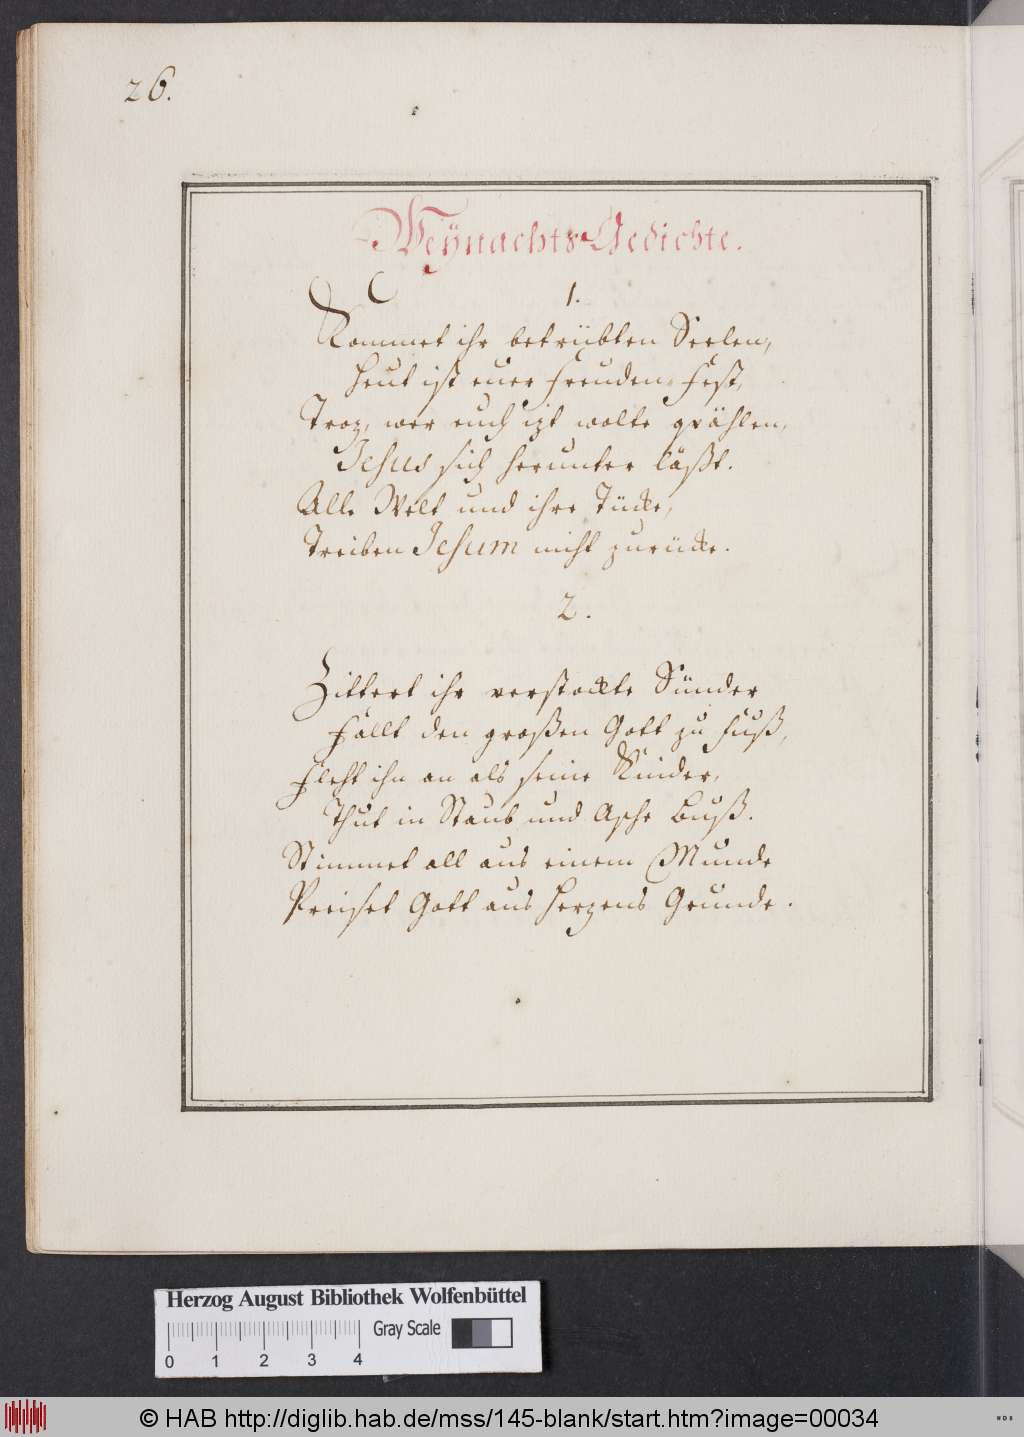 26.
Weÿnachts-Gedichte.
1.
Kommet ihr betrübten Seelen,
Heut ist euer Freuden-Fest,
Troz, wer euch izt wolte quählen,
Jesus sich herunter läßt.
Alle Welt und ihre Tücke,
Treiben Jesum nicht zurücke.
2.
Zittert ihr verstockte Sünder
Fallt den großen Gott zu Fuß,
Fleht ihn an als seine Kinder,
Thut in Staub und Asche Buß.
Stimmet all aus einem Munde
Preiset Gott aus Herzens Grunde.
Herzog August Bibliothek Wolfenbüttel
Gray Scale
0 1 2 3 4
© HAB http://diglib.hab.de/mss/145-blank/start.htm?image=00034